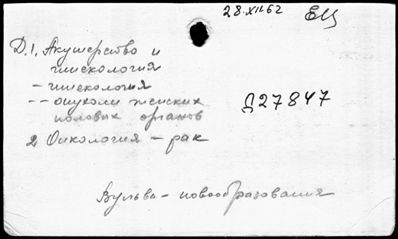 28.XII.62 ЕЦ
Д.1. Акушерство и
гинекология
- гинекология
-- опухоли женских
половых органов
Д27847
2 Онкология - рак
Вульва - новообразования